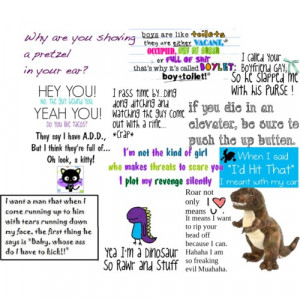 Why are you shoving
a pretzel
in your ear?
boys are like toilets
they are either VACANT,
OCCUPIED, OUT OF ORDER
or FULL OF SHIT
that's why it's called BOYLET;
boy+toilet!"
I called your
boyfriend gay,
So he slapped me
with his purse !
HEY YOU!
YEAH YOU!
They say I have A.D.D.,
But I think they're full of...
Oh look, a kitty!
I pass time by...ding
dong ditching and
watching the guy come
out with a rifle...
*crap*
if you die in an
elevator, be sure to
push the up button.
I'm not the kind of girl
who makes threats to scare you
I plot my revenge silently
When I said
"I'd Hit That"
I meant with my car
I want a man that when I
come running up to him
with tears running down
my face, the first thing he
says is "Baby, whose ass
do I have to kick!!"
Yea I'm a Dinosaur
So Rawr and Stuff
Roar not
only I
means
It means I want
to rip your
head of
because I can.
Hahaha I am
so freaking
evil Muahaha.